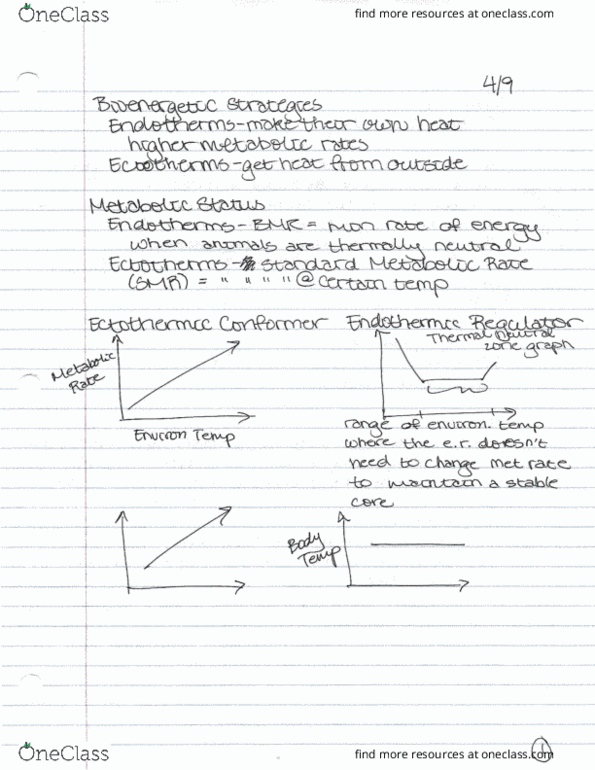 OneClass
find more resources at oneclass.com
4/9
Bioenergetic Strategies
Endotherms - make their own heat
higher metabolic rates
Ectotherms - get heat from outside
Metabolic Status
Endotherms - BMR = min rate of energy
when animals are thermally neutral
Ectotherms - Standard Metabolic Rate
(SMR) = " " " " @ certain temp
Ectothermic Conformer
Endothermic Regulator
Thermal Neutral
zone graph
Metabolic
Rate
Environ Temp
range of environ. temp
where the e.r. doesn't
need to change met rate
to maintain a stable
core
Body
Temp
1
OneClass
find more resources at oneclass.com